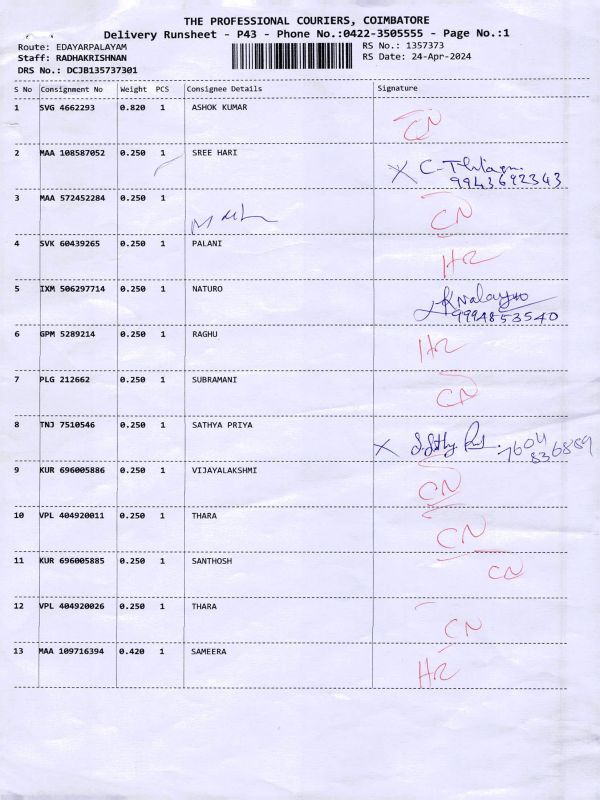 THE PROFESSIONAL COURIERS, COIMBATORE
Delivery Runsheet - P43 - Phone No.:0422-3505555 - Page No.:1
Route: EDAYARPALAYAM
RS No.: 1357373
Staff: RADHAKRISHNAN
RS Date: 24-Apr-2024
DRS No.: DCJB135737301
S No Consignment No Weight PCS Consignee Details Signature
1 SVG 4662293 0.820 1 ASHOK KUMAR CN
2 MAA 108587052 0.250 1 SREE HARI X C.
9943692343
3 MAA 572452284 0.250 1 CN
4 SVK 60439265 0.250 1 PALANI HR
5 IXM 506297714 0.250 1 NATURO
9994853540
6 GPM 5289214 0.250 1 RAGHU HR
7 PLG 212662 0.250 1 SUBRAMANI CN
8 TNJ 7510546 0.250 1 SATHYA PRIYA X 7604
836889
9 KUR 696005886 0.250 1 VIJAYALAKSHMI CN
10 VPL 404920011 0.250 1 THARA CN
11 KUR 696005885 0.250 1 SANTHOSH CN
12 VPL 404920026 0.250 1 THARA CN
13 MAA 109716394 0.420 1 SAMEERA HR